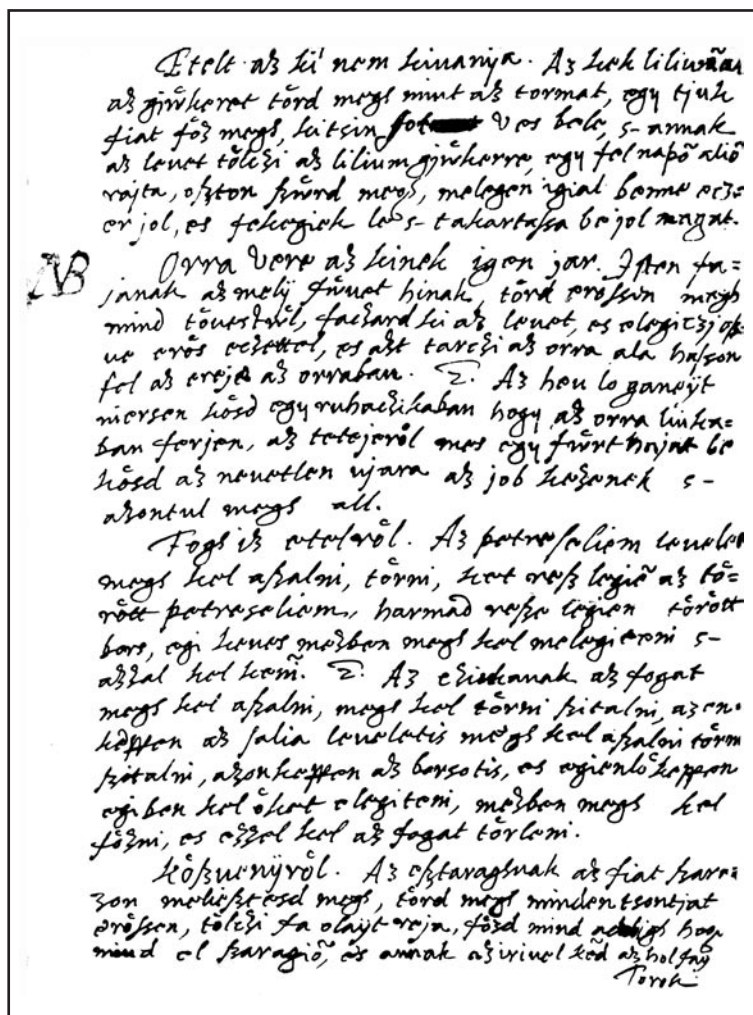 Etelt az ki nem kiuanÿa. Az kek liliũmnak
az giwkeret tőrd megh mint az tormat, egÿ tiuk
fiat főz megh, kitsin sot vs bele, s- annak
az leuet tőlczi az lilium giwkerre, egÿ fel napõ aliõ
rajta, oszton szwrd megh, melegen igial benne ecze-
er jol, es fekegiek le s- takartassa be jol magat.
NB Orra Vere az kinek igen jar. Isten fa=
janak az melÿ fwuet hinak, tőrd erőssen megh
mind tőuestwl, facsard ki az leuet, es elegiczj ősz
ue erős eczettel, es azt tarczi az orra ala hasson
fel az ereje az orraban. 2. Az heu lo ganeÿt
niersen kősd egÿ ruhaczikaban hogÿ az orra linka=
ban ferjen, az tetejeről mes egÿ fwrt hajat be
kősd az neuetlen ujara az job kezenek s-
azontul megh all.
Fogh iz etelről. Az petreseliem leuelet
megh kel aszalni, tőrni, ket resz legiẽ az tő=
rőtt petreseliem, harmad resze legien tőrőtt
bors, egi keues mezben megh kel melegiteni s-
azzal kel keñi. 2. Az czukanak az fogat
megh kel aszalni, megh kel tőrni szitalni, azen-
keppen az salia leueletis megh kel aszalni tőrni
szitalni, azonkeppen az borsotis, es egienlő keppen
egiben kel őket elegiteni, mezben megh kel
főzni, es ezzel kel az fogat tőrleni.
Kőszuenÿről. Az esztaraghnak az fiat szara=
zon melieszt esd megh, tőrd megh minden tsontjat
erőssen, tőlczi fa olaÿt reja, fősd mind addigh hogÿ
mind el szaragiõ, es annak az iriuel kẽd az hol faÿ
Torok